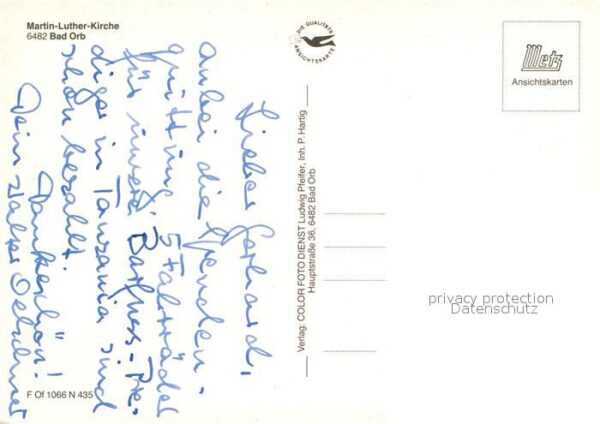 Martin-Luther-Kirche
6482 Bad Orb
DIE QUALITÄTS
ANSICHTSKARTE
Metz
Ansichtskarten
Lieber Gerhard,
anbei die Spenden-
quittung. 5 Fahrräder
für unsere Barfuss-Pre-
diger in Tansania sind
schon bezahlt.
Dankeschön!
Dein Walter
Verlag: COLOR FOTO DIENST Ludwig Pfeifer, Inh. P. Hartig
Hauptstraße 36, 6482 Bad Orb
privacy protection
Datenschutz
F Of 1066 N 435